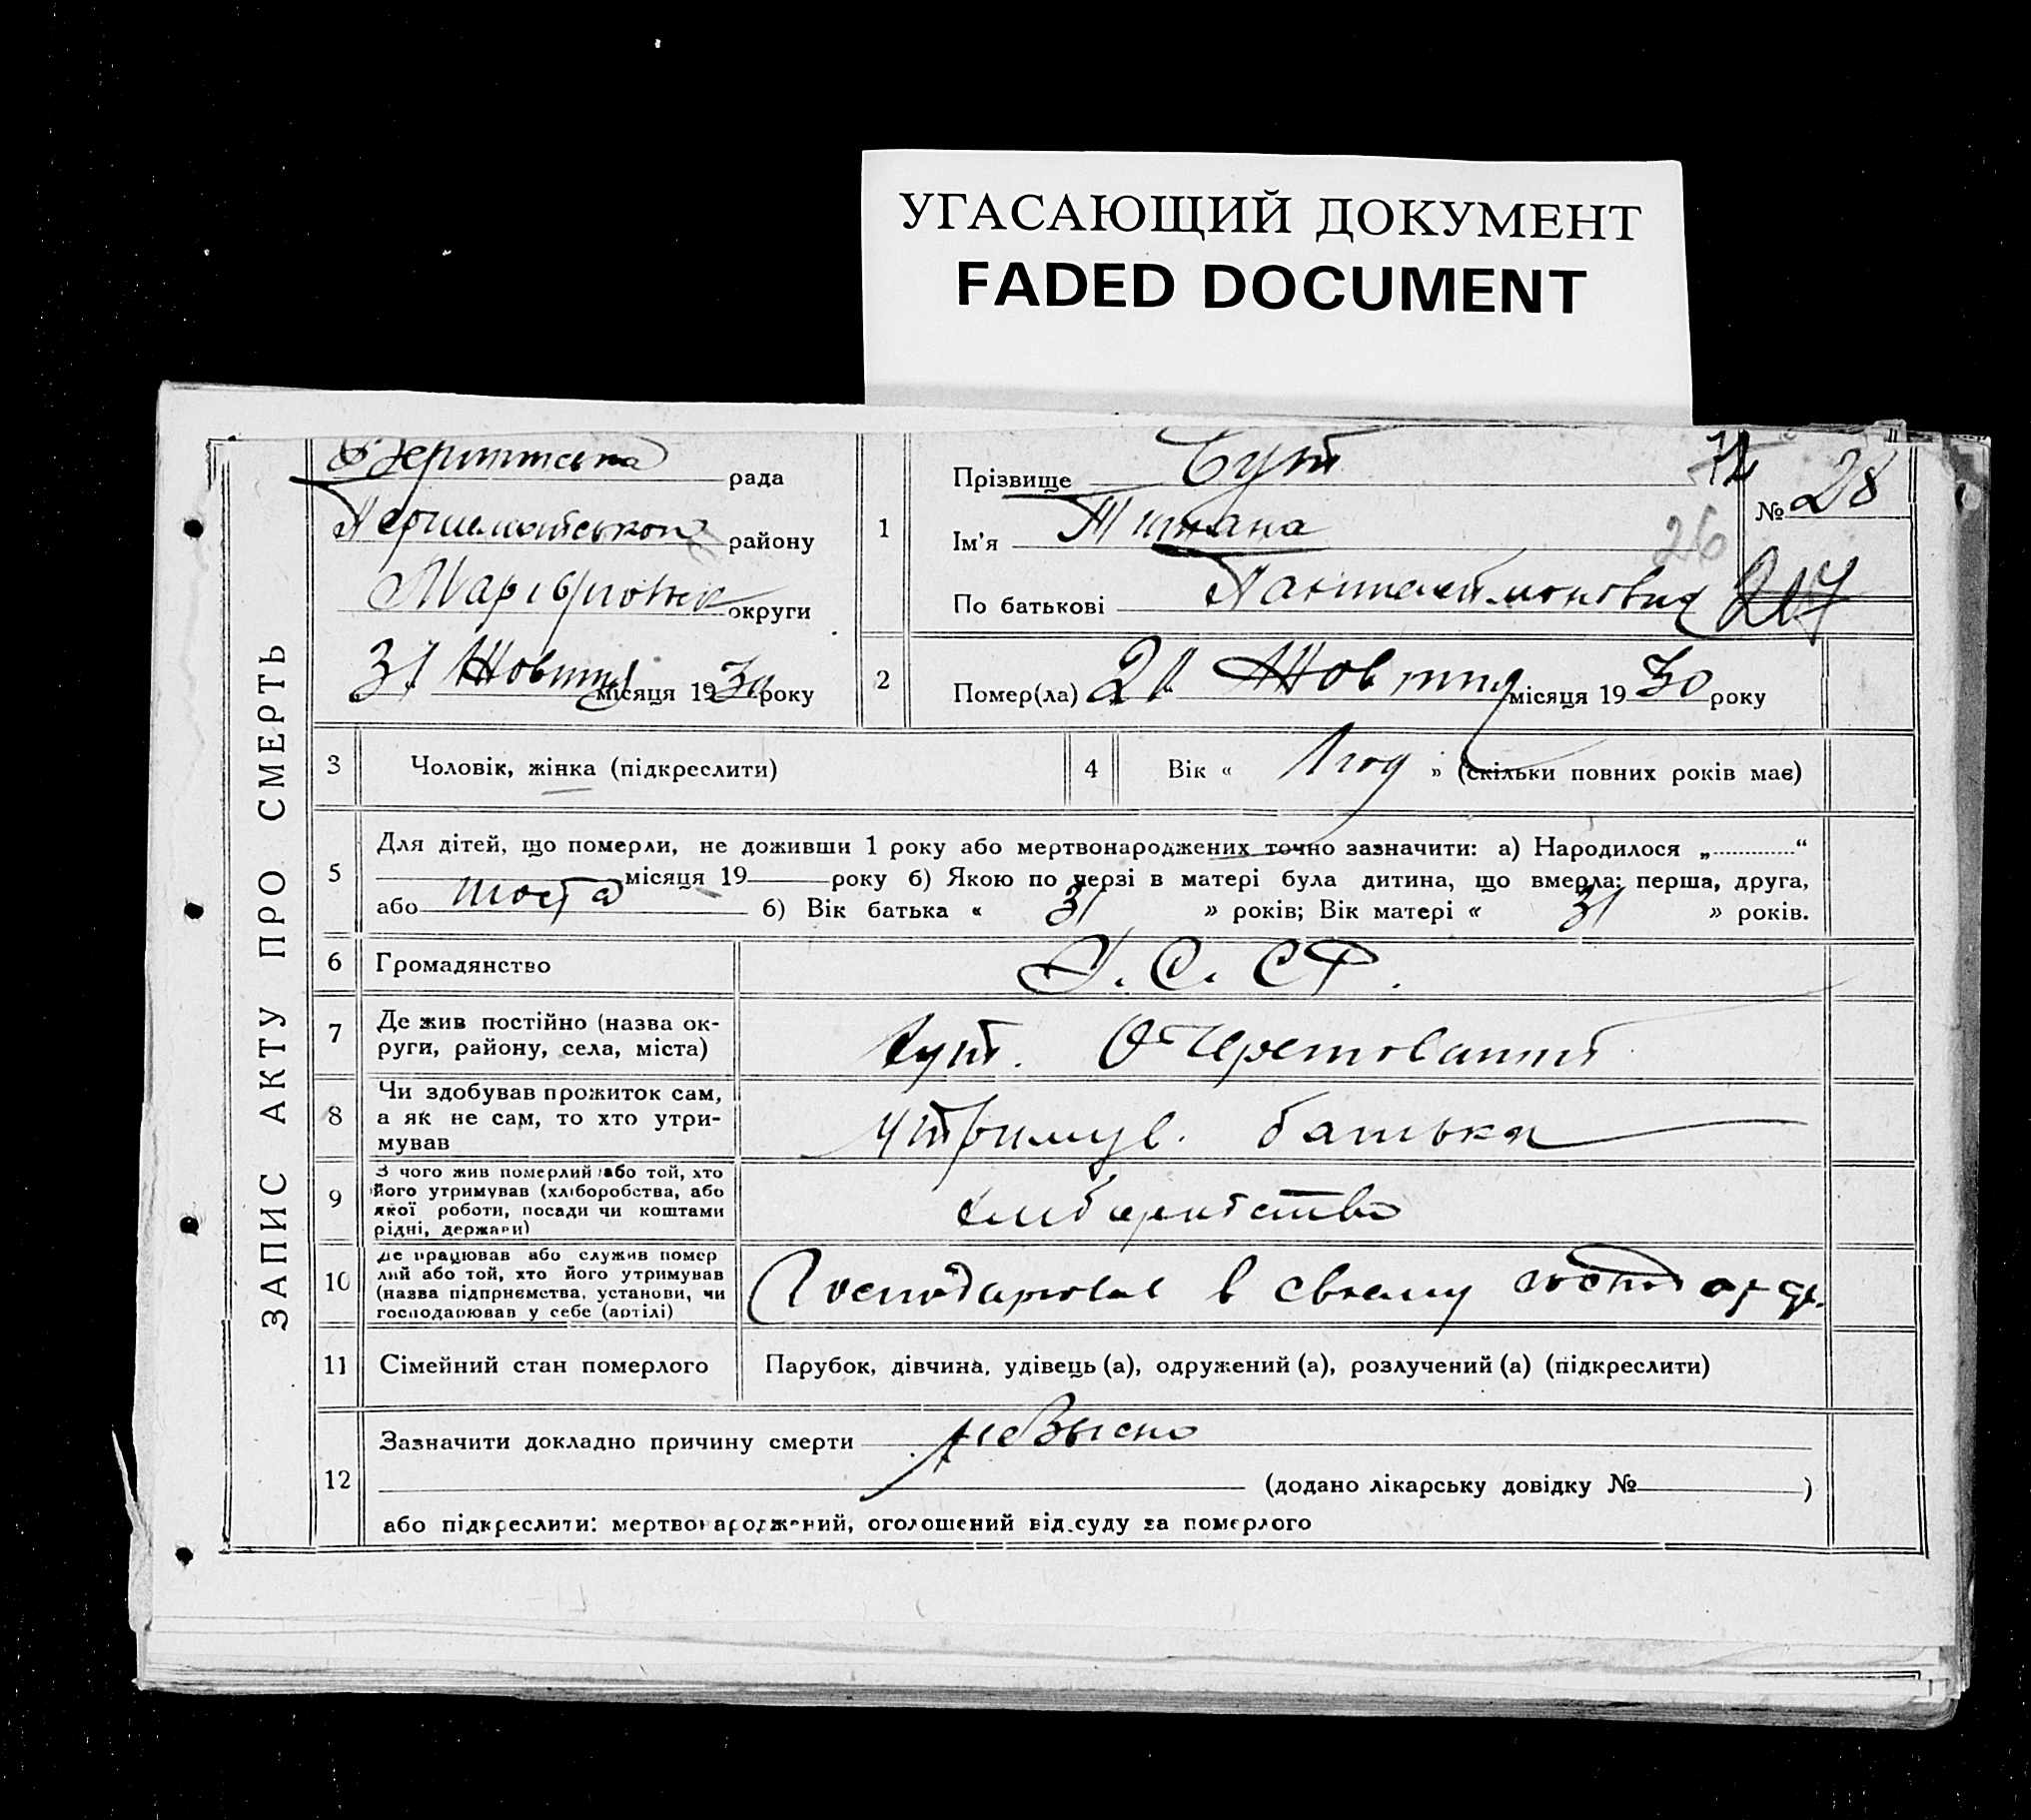 УГАСАЮЩИЙ ДОКУМЕНТ
FADED DOCUMENT
ЗАПИС АКТУ ПРО СМЕРТЬ
рада
району
округи
31 Жовтня місяця 1930 року
1
Прізвище
Ім'я Титяна
По батькові Пантелеймоновна
№ 28
26
2
Помер(ла) Жовтня місяця 1930 року
3
Чоловік, жінка (підкреслити)
4
Вік « 1 год » (скільки повних років має)
5
Для дітей, що померли, не доживши 1 року або мертвонароджених точно зазначити: а) Народилося „ “
місяця 19 року б) Якою по черзі в матері була дитина, що вмерла: перша, друга,
або шоста б) Вік батька « 31 » років; Вік матері « 31 » років.
6
Громадянство
У.С.СР.
7
Де жив постійно (назва ок-
руги, району, села, міста)
хут.
8
Чи здобував прожиток сам,
а як не сам, то хто утри-
мував
утримув. батька
9
З чого жив померлий або той, хто
його утримував (хліборобства, або
якої роботи, посади чи коштами
рідні, держави)
10
Де працював або служив помер
лий або той, хто його утримував
(назва підприємства, установи, чи
господарював у себе (артілі)
Господарював в своему
11
Сімейний стан померлого
Парубок, дівчина, удівець (а), одружений (а), розлучений (а) (підкреслити)
12
Зазначити докладно причину смерти
(додано лікарську довідку № )
або підкреслити: мертвонароджений, оголошений від суду за померлого